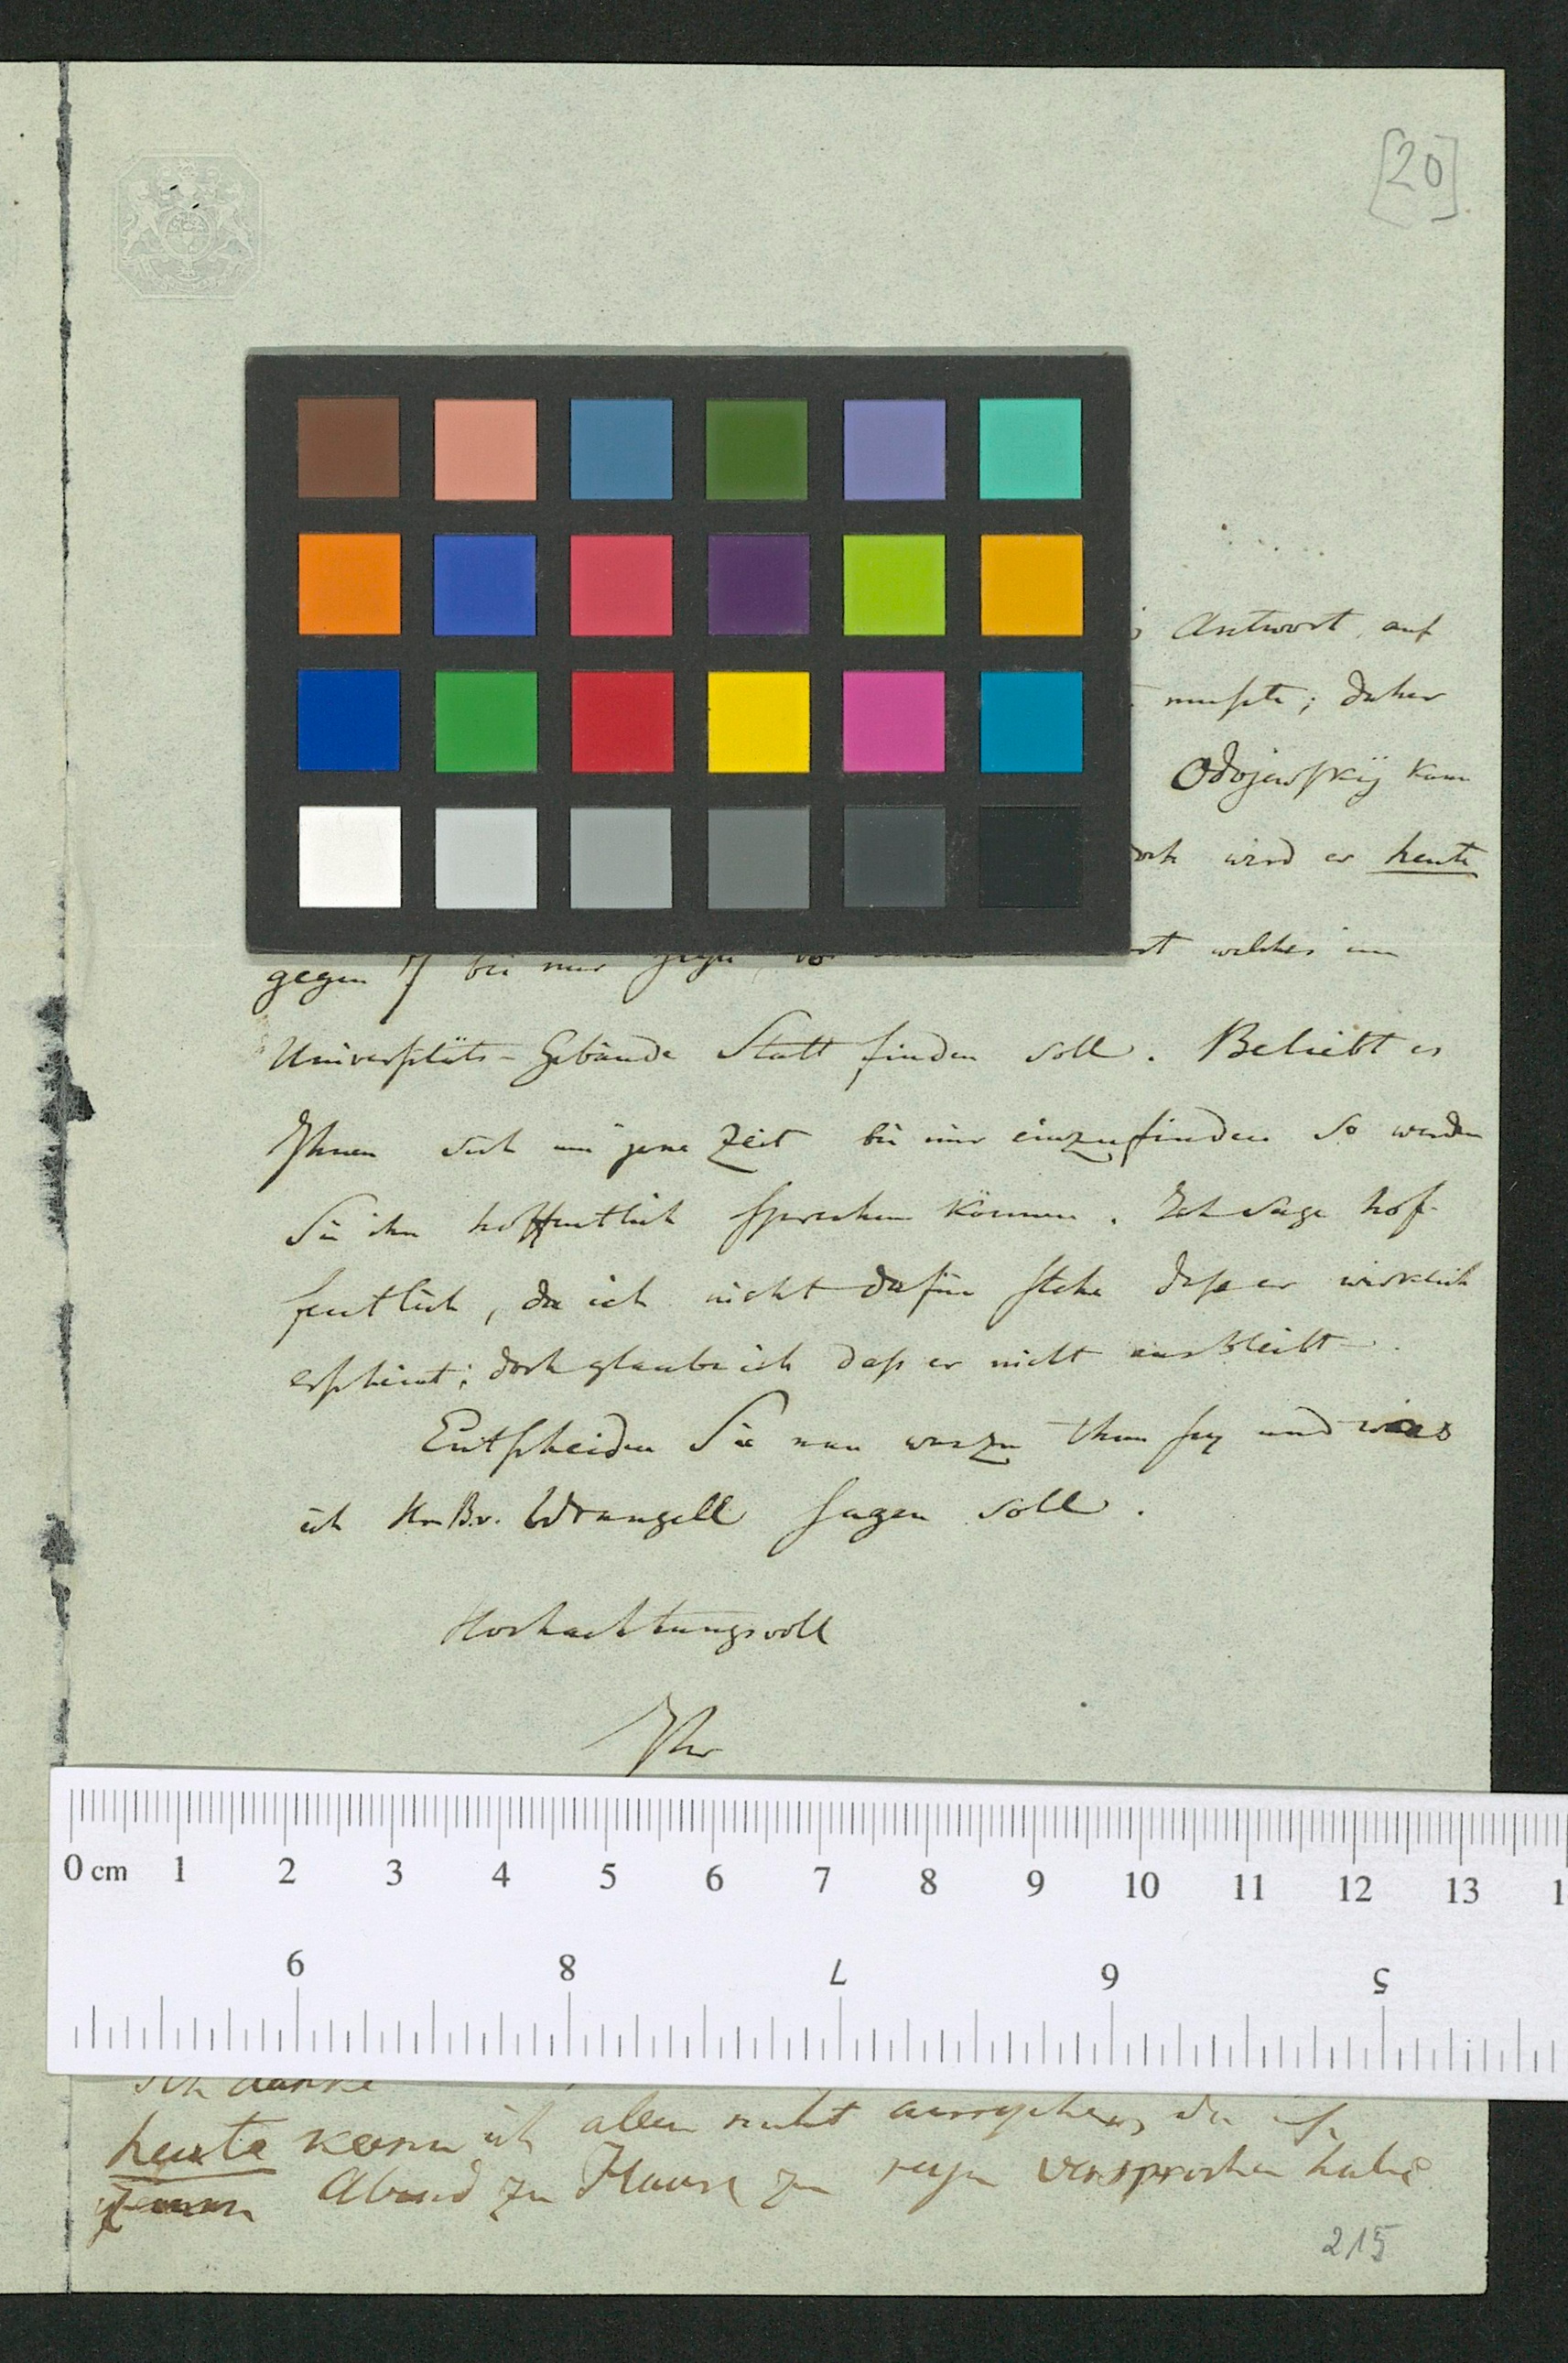 [20]
Antwort auf
mußte; daher
Odojewskÿ kam
doch wird er heute
gegen 7 bei mir welches im
Universitäts-Gebäude Statt finden soll. Beliebt es
Ihnen sich um jene Zeit bei mir einzufinden so werden
Sie ihn hoffentlich sprechen können. Ich sage hof-
fentlich, da ich nicht dafür stehe daß er wirklich
erscheint; doch glaube ich daß er nicht ausbleibt.
Entscheiden Sie nun was zu thun sey und was
ich Hr. B. v. Wrangell sagen soll.
Hochachtungsvoll
Ihr
0 cm 1 2 3 4 5 6 7 8 9 10 11 12 13 1
9 8 7 6 5
Ich danke
heute kann ich aber nicht da ich
Abend zu Hause zu seyn versprochen habe
215